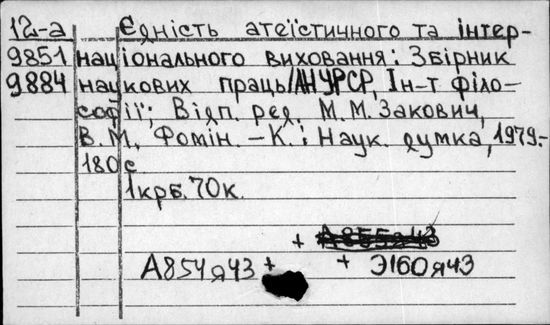 12-а Єдність атеїстичного та інтер-
9851 національного виховання: Збірник
9884 наукових праць/АН УРСР, Ін-т філо-
софії; Відп. ред. М.М. Закович,
В.М. Фомін. – К.: Наук. думка, 1979.-
180 с
1крб. 70к.
+ А855я43
А854я43 + + Э160я43